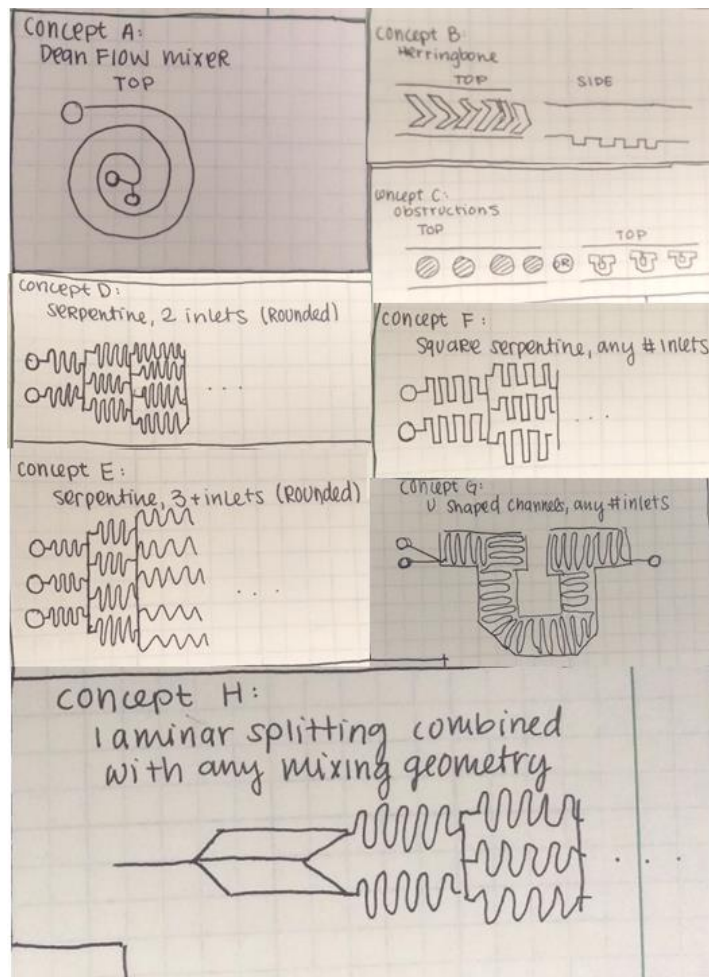 Concept A:
Dean Flow mixer
TOP
Concept B:
Herringbone
TOP
SIDE
Concept C:
obstructions
TOP
OR
TOP
Concept D:
serpentine, 2 inlets (Rounded)
. . .
Concept F:
Square serpentine, any # inlets
. . .
Concept E:
serpentine, 3+ inlets (Rounded)
. . .
Concept G:
U shaped channels, any # inlets
Concept H:
laminar splitting combined
with any mixing geometry
. . . .